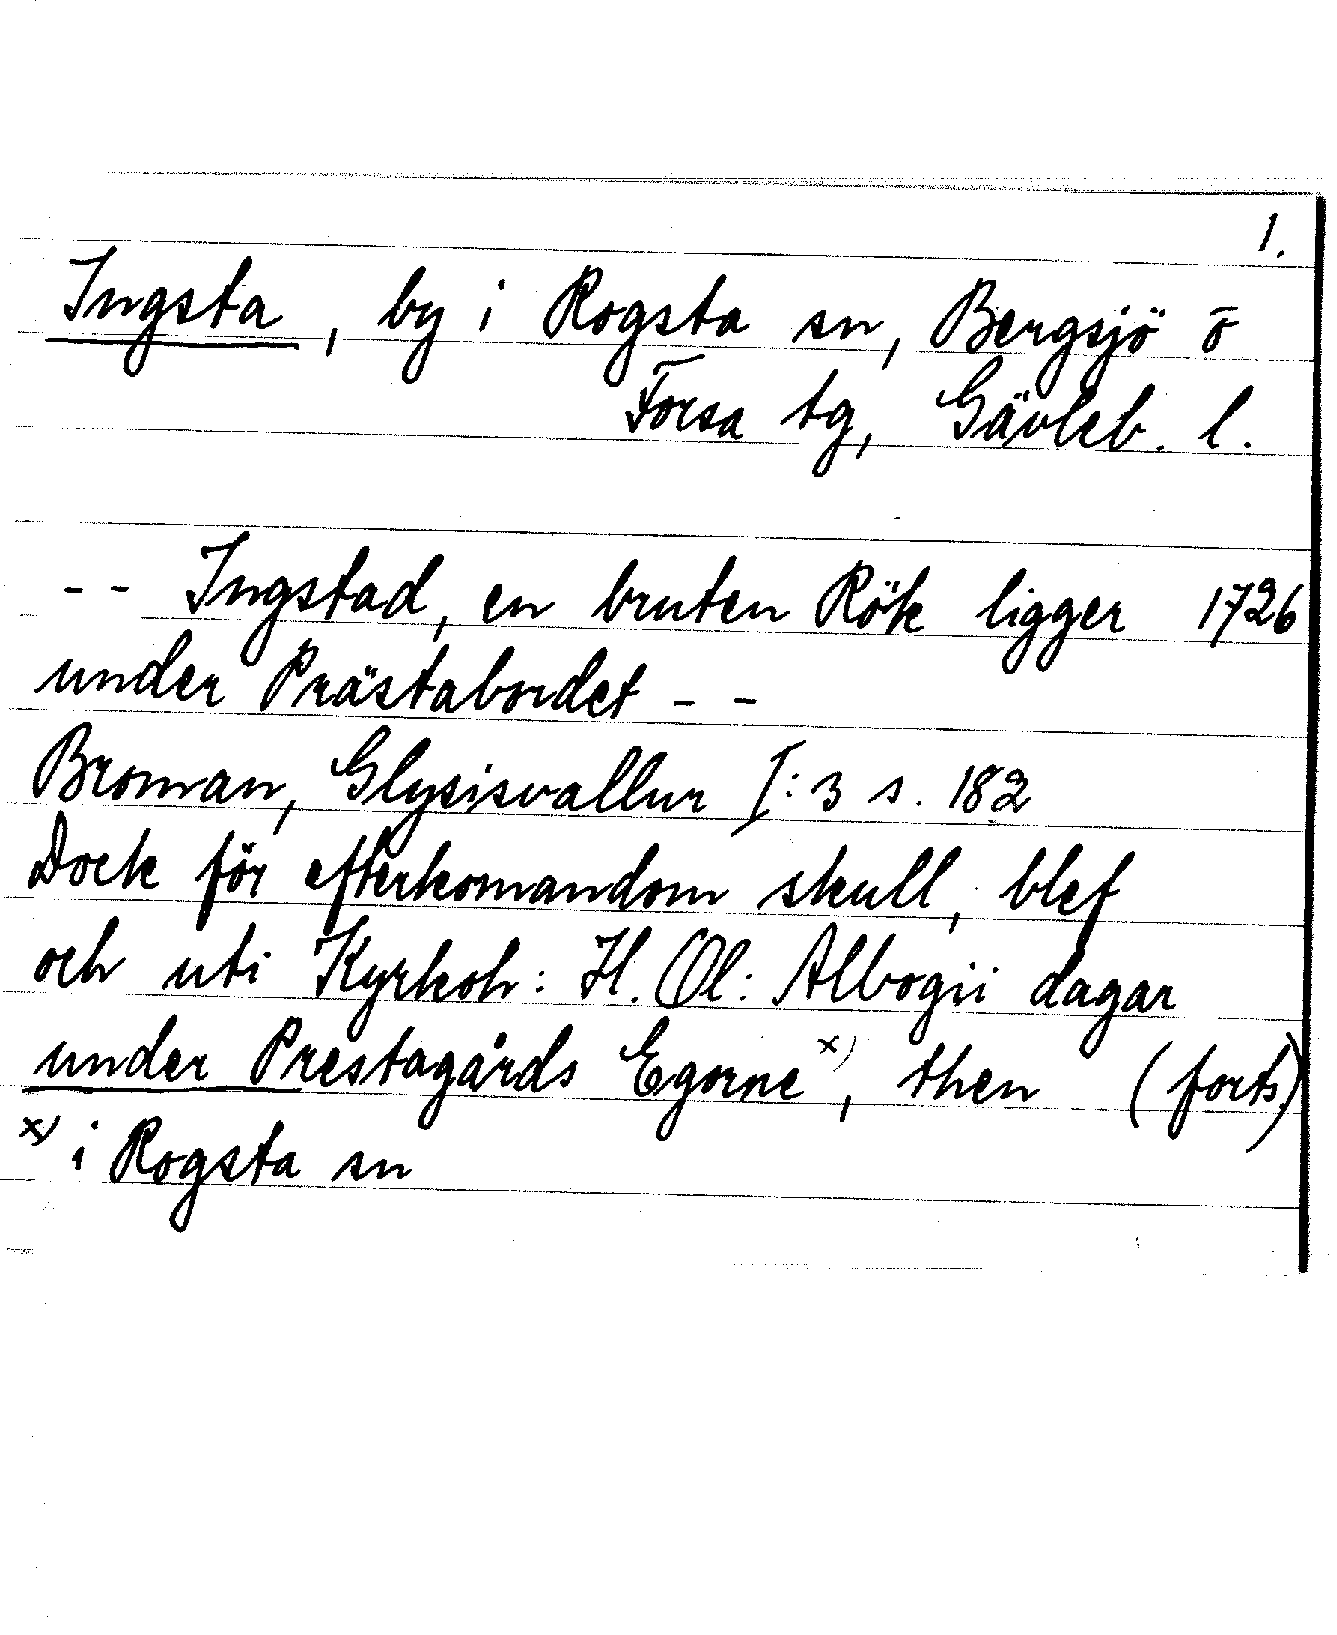 1.
Ingsta, by i Rogsta sn, Bergsjö o
Forsa tg, Gävleb. l.
-- Ingstad, en bruten Rök ligger 1726
under Prästabordet --
Broman, Glysisvallur I:3 s. 182
Dock för efterkomandom skull, blef
och uti Kyrkoh: H. Ol: Albogii dagar
under Prestagårds Egorne x), then (forts)
x) i Rogsta sn